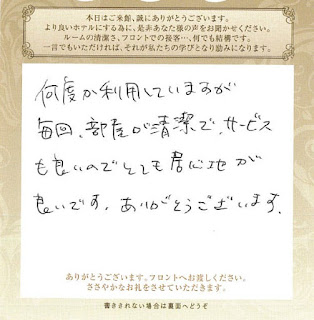 本日はご来館、誠にありがとうございます。
より良いホテルにする為に、是非あなた様の声をお聞かせください。
ルームの清潔さ、フロントでの接客…、何でも結構です。
一言でもいただければ、それが私たちの学びとなり励みになります。
何度か利用していますが
毎回、部屋が清潔で、サービス
も良いのでとても居心地が
良いです。ありがとうございます。
ありがとうございます。フロントへお渡しください。
ささやかなお礼をさせていただきます。
書ききれない場合は裏面へどうぞ